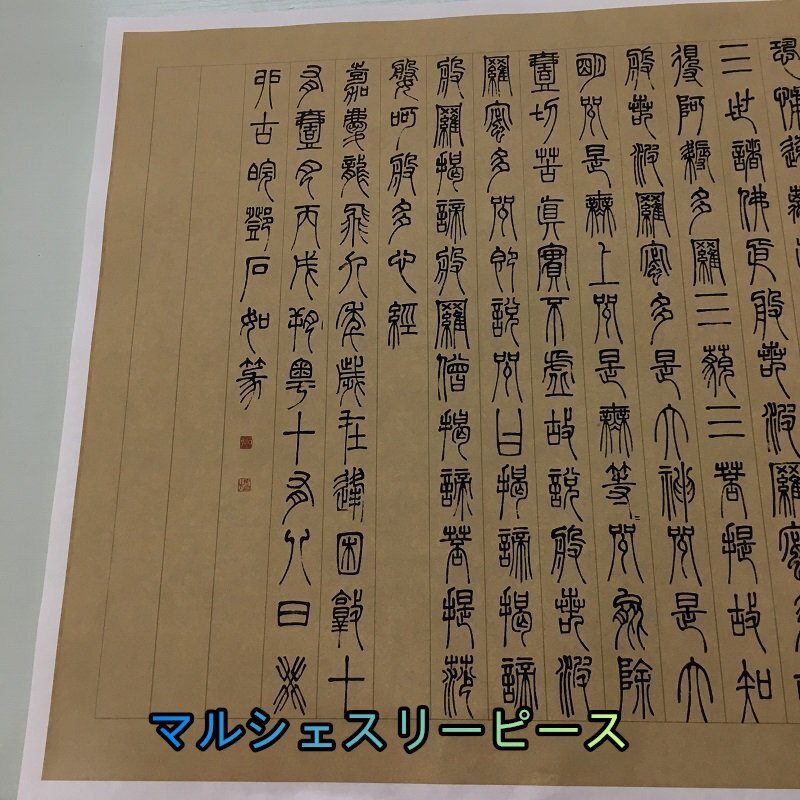 恐怖遠離
三世諸佛依般若波羅蜜多故
得阿耨多羅三藐三菩提故知
般若波羅蜜多是大神咒是大
明咒是無上咒是無等等咒能除
壹切苦真實不虛故說般若波
羅蜜多咒即說咒曰揭諦揭諦
般羅揭諦般羅僧揭諦菩提莎
婆呵般多心經
嘉慶龍飛九年歲在逢困敦十
有壹月丙戌朔粵十有八日癸
卯古皖鄧石如篆
マルシェスリーピース